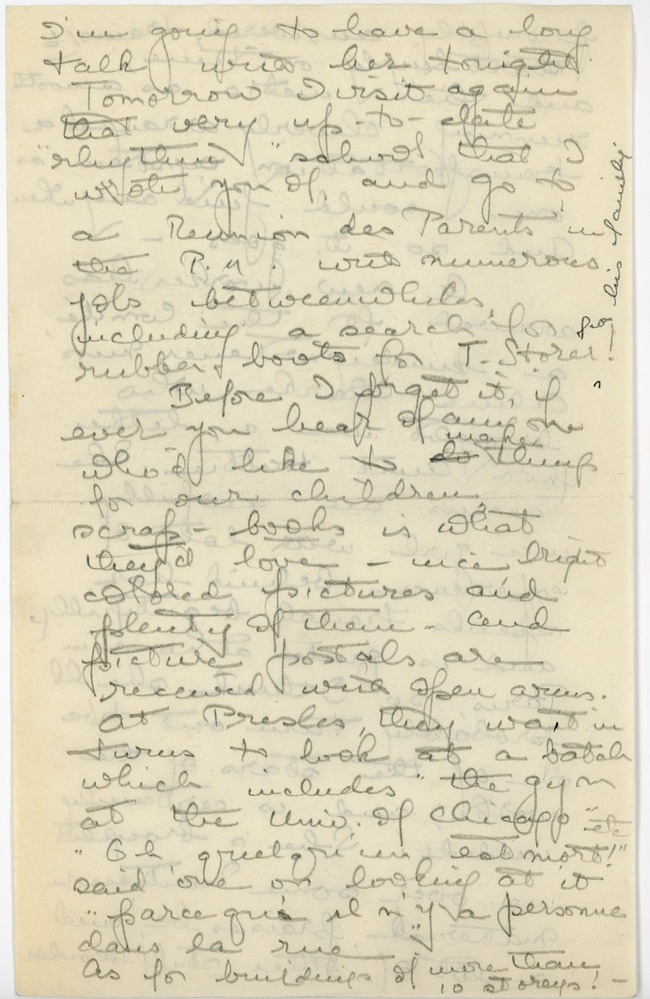 I'm going to have a long
talk with her tonight.
Tomorrow I visit again
that very up-to-date
"rhythmic" school that I
wrote you of, and go to
a Reunion des Parents in
the P.M. with numerous
jobs betweenwhiles,
including a search for
rubber boots for T. Storer!
for his family
Before I forget it, if
ever you hear of any one
who'd like to do make things
for our children,
scrap-books is what
they'd love - nice bright
colored pictures and
plenty of them. And
picture postals are
received with open arms.
At Presles, they wait in
turns to look at a batch
which includes "the gym
at the Univ. of Chicago" etc
"Oh quelqu'un est mort!"
said one on looking at it
"parce qu'il n'y a personne
dans la rue
As for buildings of more than
10 storeys! -